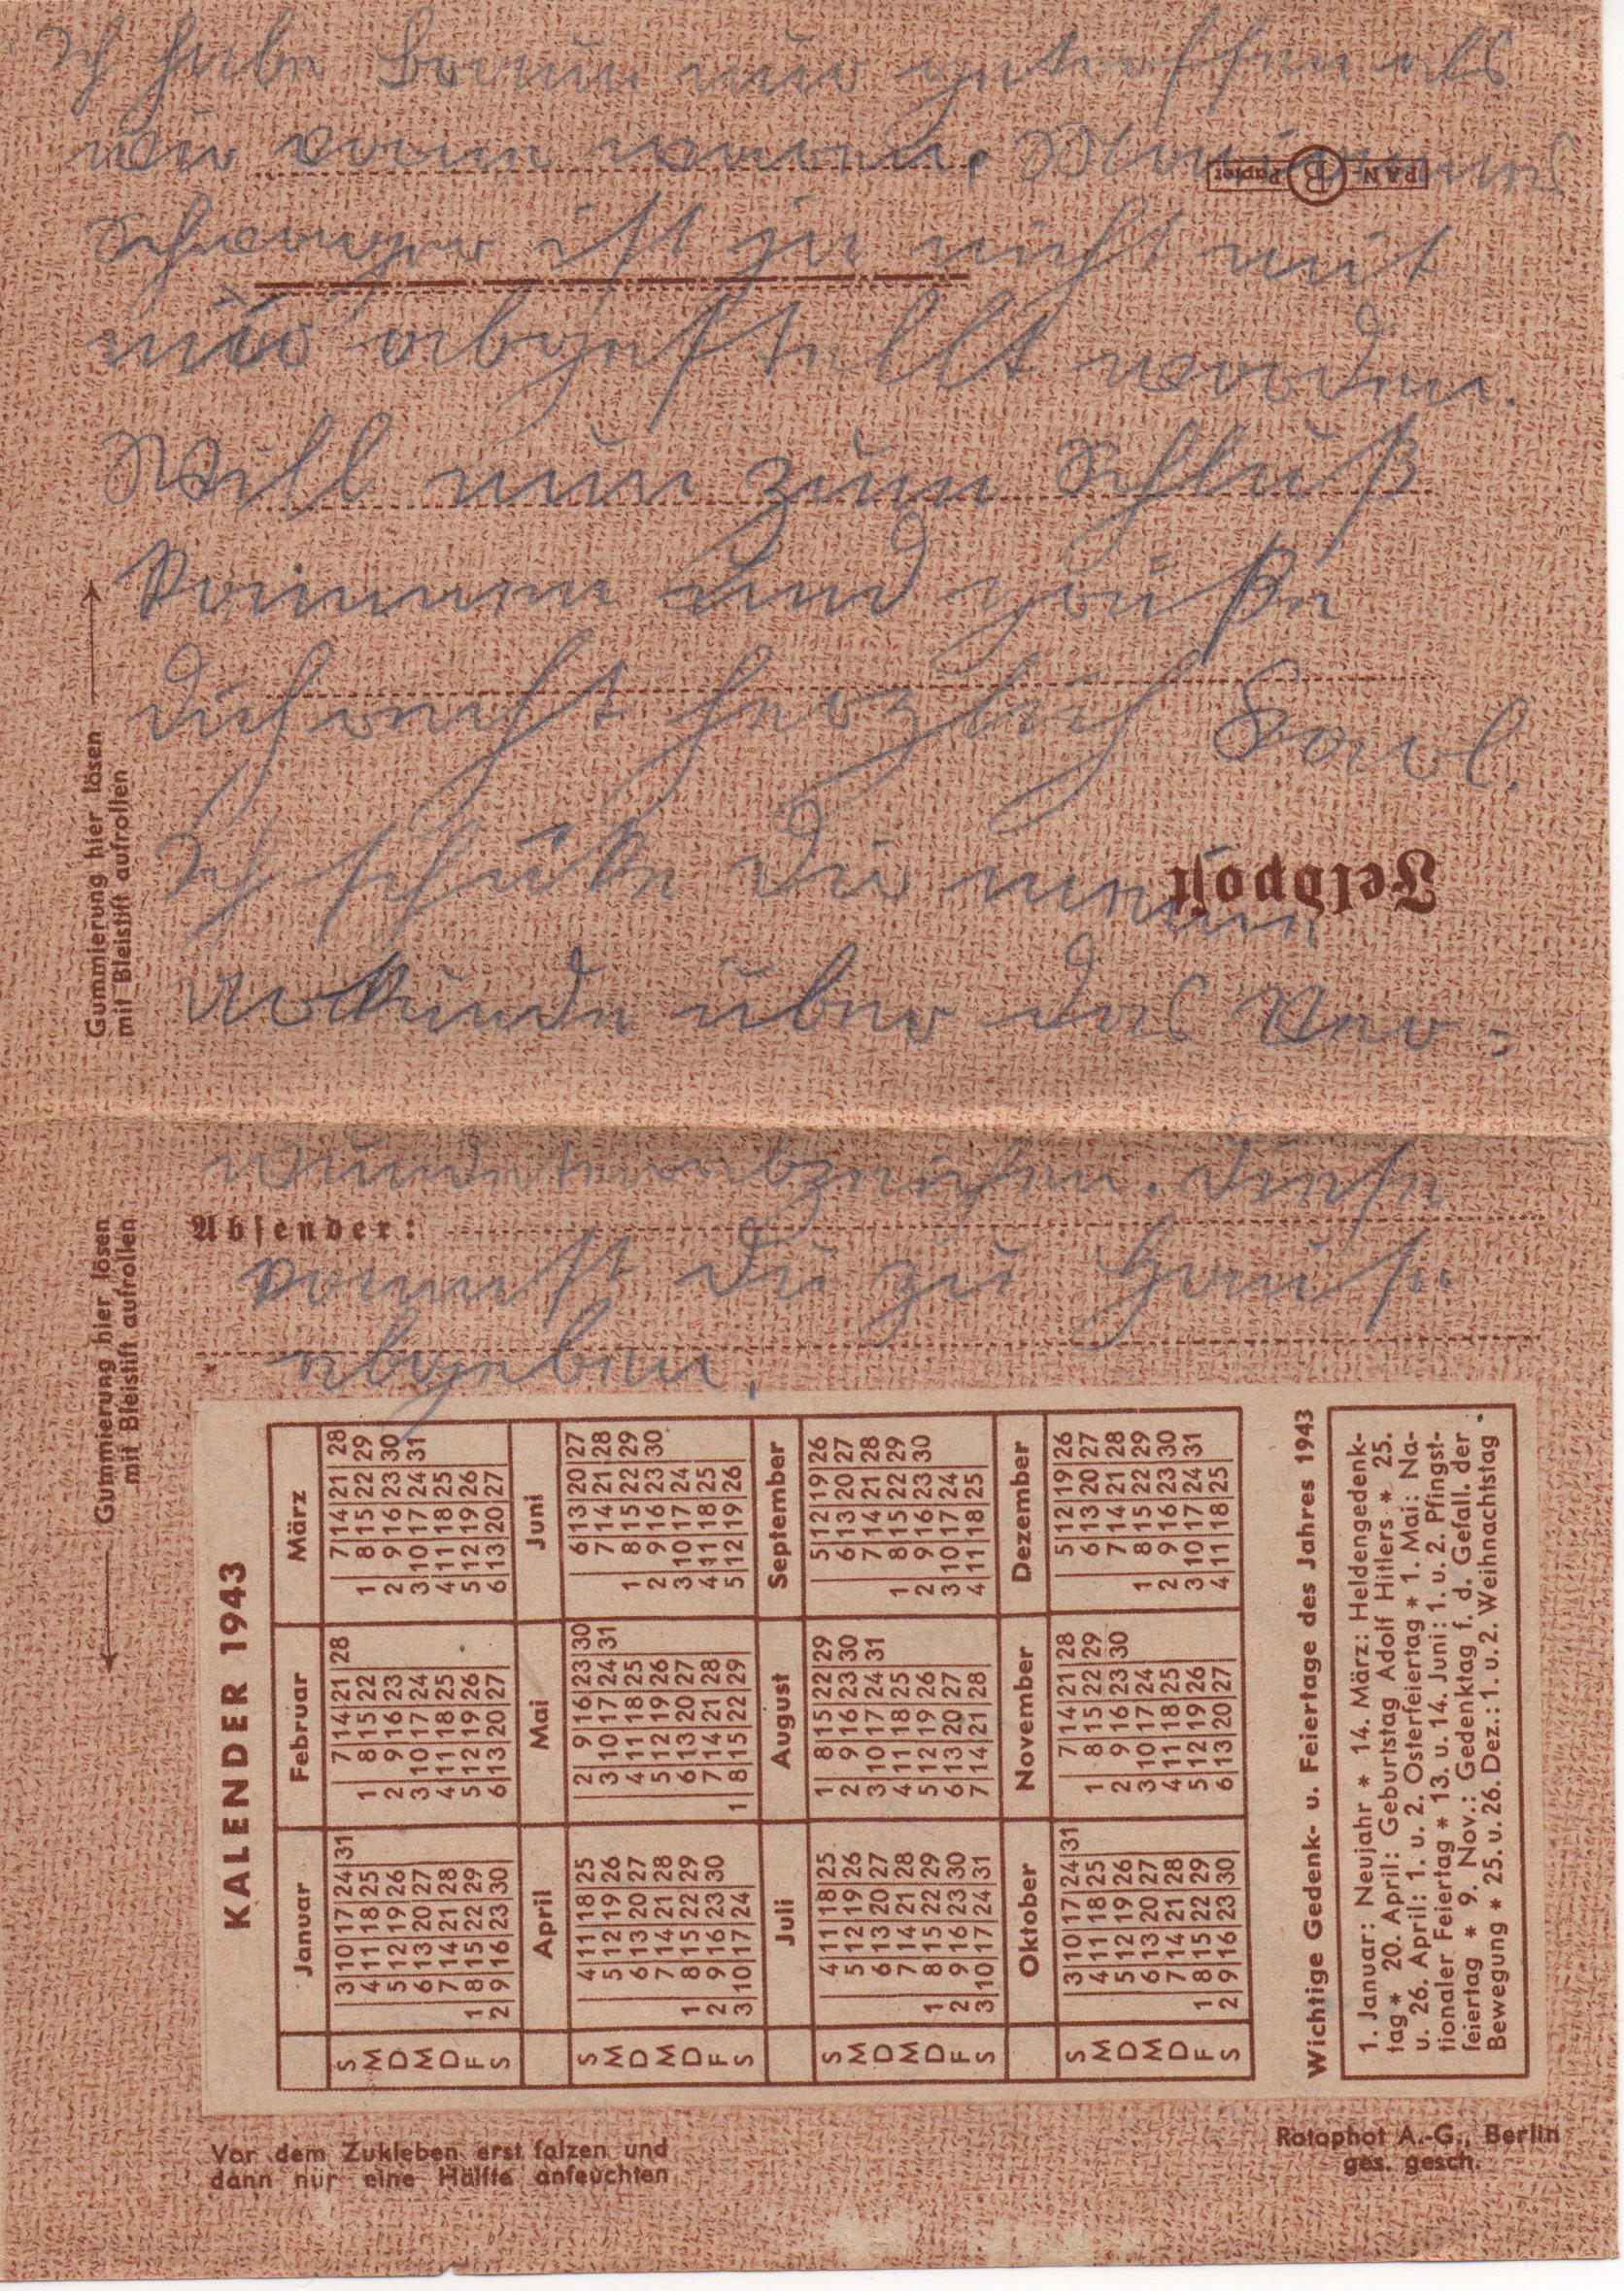 Ich habe Braun nur getroffen als
wir vorn waren.
Schwager ist ja nicht mit
mir abgestellt worden.
Will nun zum Schluß
kommen und grüße
Dich recht herzlich Karl.
Ich schicke Dir meine
Urkunde über das Ver-
wundetenabzeichen. Diese
kannst Du zu Hause
abgeben.
PAN B Papier
Feldpost
Gummierung hier lösen
mit Bleistift aufrollen
Absender:
Gummierung hier lösen
mit Bleistift aufrollen
KALENDER 1943
Januar Februar März
S 3 10 17 24 31 7 14 21 28 7 14 21 28
M 4 11 18 25 1 8 15 22 1 8 15 22 29
D 5 12 19 26 2 9 16 23 2 9 16 23 30
M 6 13 20 27 3 10 17 24 3 10 17 24 31
D 7 14 21 28 4 11 18 25 4 11 18 25
F 1 8 15 22 29 5 12 19 26 5 12 19 26
S 2 9 16 23 30 6 13 20 27 6 13 20 27
April Mai Juni
S 4 11 18 25 2 9 16 23 30 6 13 20 27
M 5 12 19 26 3 10 17 24 31 7 14 21 28
D 6 13 20 27 4 11 18 25 1 8 15 22 29
M 7 14 21 28 5 12 19 26 2 9 16 23 30
D 1 8 15 22 29 6 13 20 27 3 10 17 24
F 2 9 16 23 30 7 14 21 28 4 11 18 25
S 3 10 17 24 1 8 15 22 29 5 12 19 26
Juli August September
S 4 11 18 25 1 8 15 22 29 5 12 19 26
M 5 12 19 26 2 9 16 23 30 6 13 20 27
D 6 13 20 27 3 10 17 24 31 7 14 21 28
M 7 14 21 28 4 11 18 25 1 8 15 22 29
D 1 8 15 22 29 5 12 19 26 2 9 16 23 30
F 2 9 16 23 30 6 13 20 27 3 10 17 24
S 3 10 17 24 31 7 14 21 28 4 11 18 25
Oktober November Dezember
S 3 10 17 24 31 7 14 21 28 5 12 19 26
M 4 11 18 25 1 8 15 22 29 6 13 20 27
D 5 12 19 26 2 9 16 23 30 7 14 21 28
M 6 13 20 27 3 10 17 24 1 8 15 22 29
D 7 14 21 28 4 11 18 25 2 9 16 23 30
F 1 8 15 22 29 5 12 19 26 3 10 17 24 31
S 2 9 16 23 30 6 13 20 27 4 11 18 25
Wichtige Gedenk- u. Feiertage des Jahres 1943
1. Januar: Neujahr * 14. März: Heldengedenk-
tag * 20. April: Geburtstag Adolf Hitlers * 25.
u. 26. April: 1. u. 2. Osterfeiertag * 1. Mai: Na-
tionaler Feiertag * 13. u. 14. Juni: 1. u. 2. Pfingst-
feiertag * 9. Nov.: Gedenktag f. d. Gefall. der
Bewegung * 25. u. 26. Dez.: 1. u. 2. Weihnachtstag
Vor dem Zukleben erst falzen und
dann nur eine Hälfte anfeuchten
Rotophot A.-G., Berlin
ges. gesch.